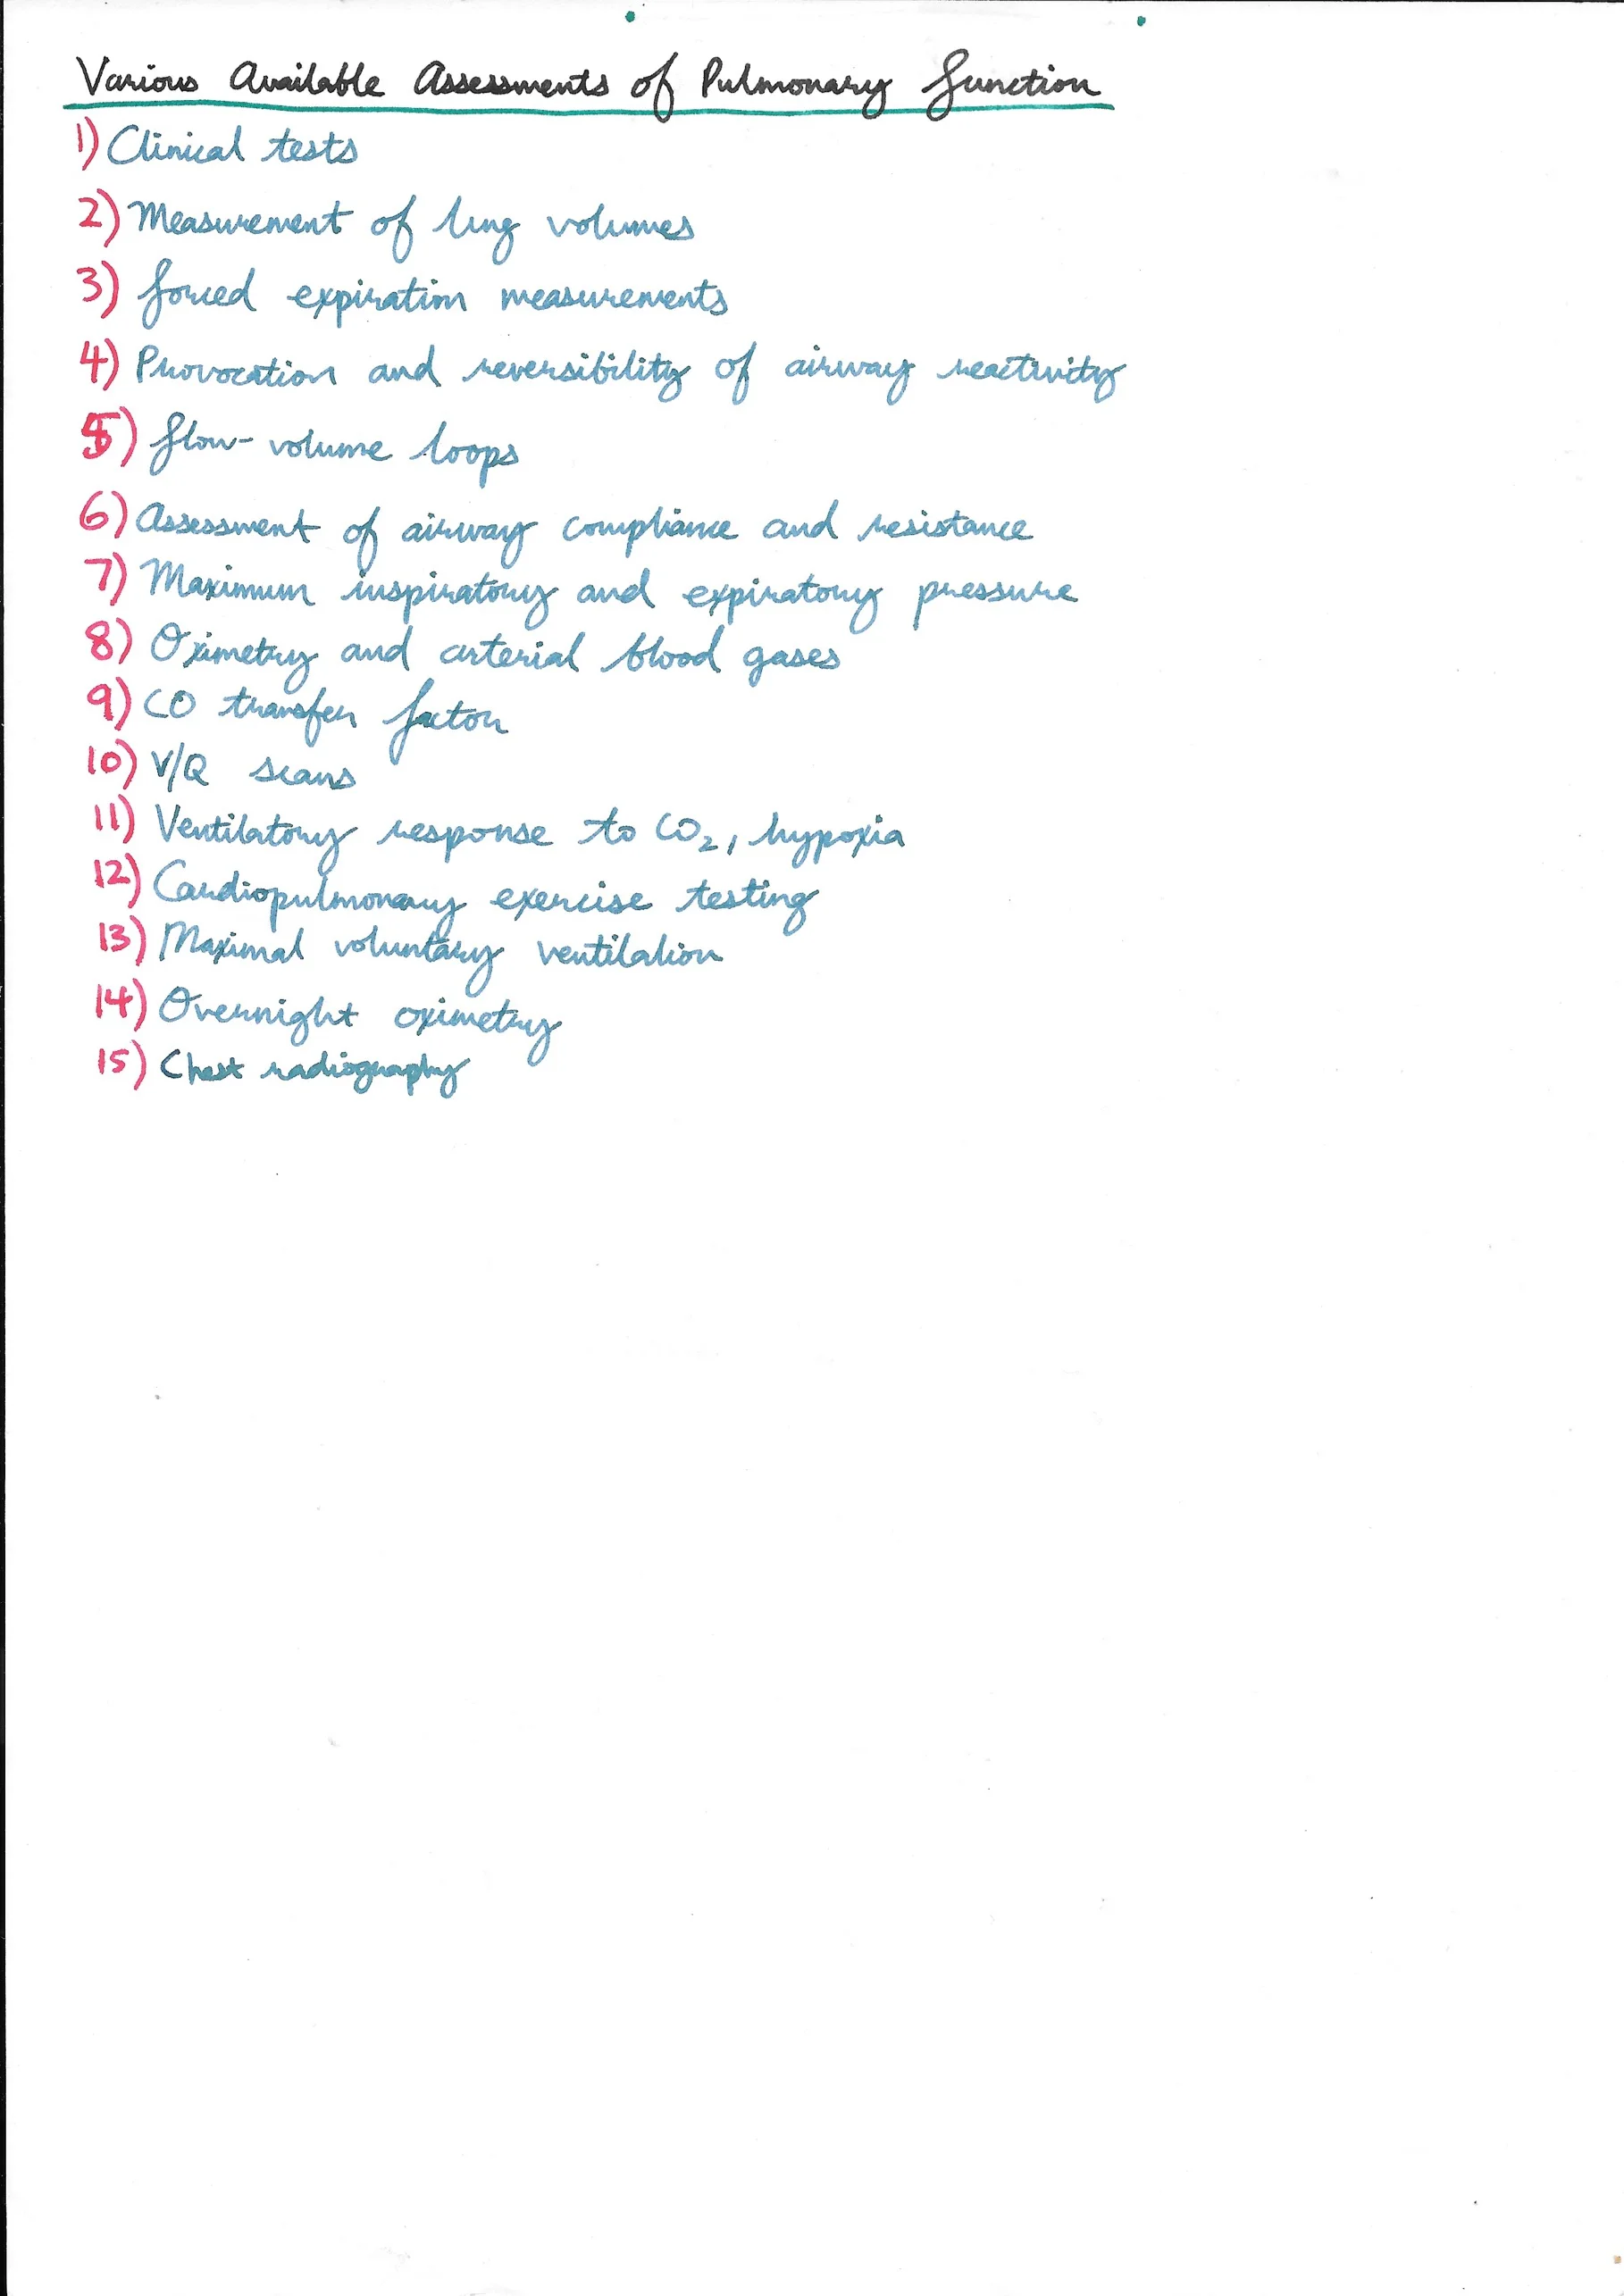 Various Available Assessments of Pulmonary Function
1) Clinical tests
2) Measurement of lung volumes
3) Forced expiration measurements
4) Provocation and reversibility of airway reactivity
5) Flow-volume loops
6) Assessment of airway compliance and resistance
7) Maximum inspiratory and expiratory pressure
8) Oximetry and arterial blood gases
9) CO transfer factor
10) V/Q scans
11) Ventilatory response to CO₂, hypoxia
12) Cardiopulmonary exercise testing
13) Maximal voluntary ventilation
14) Overnight oximetry
15) Chest radiography